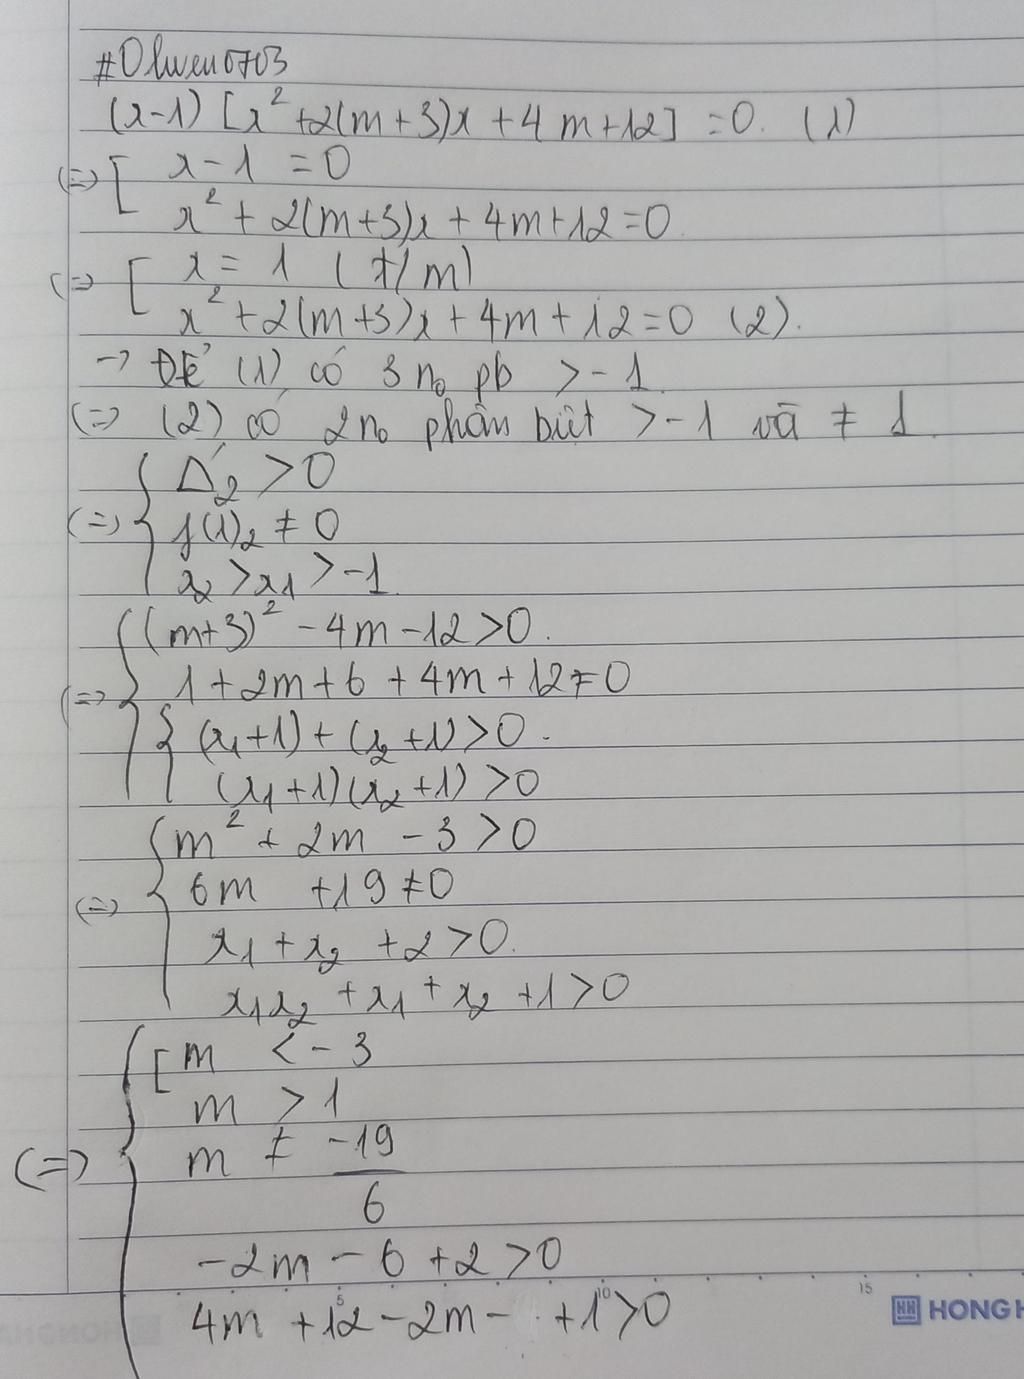 #Olwen0703
(x-1) [x² + 2(m+3)x + 4m+12] = 0. (1)
(=) [ x - 1 = 0
x² + 2(m+3)x + 4m+12 = 0
(=) [ x = 1 (t/m)
x² + 2(m+3)x + 4m + 12 = 0 (2).
-> Để (1) có 3 no pb > -1
(=) (2) có 2 no phân biệt > -1 và ≠ 1.
{ Δ'₂ > 0
(=) f(1)₂ ≠ 0
x₂ > x₁ > -1
{ (m+3)² - 4m - 12 > 0.
(=) 1 + 2m + 6 + 4m + 12 ≠ 0
{ (x₁+1) + (x₂+1) > 0.
(x₁+1)(x₂+1) > 0
{ m² + 2m - 3 > 0
6m + 19 ≠ 0
(=)
x₁ + x₂ + 2 > 0.
x₁x₂ + x₁ + x₂ + 1 > 0
{ [ m < -3
m > 1
(=) m ≠ -19/6
-2m - 6 + 2 > 0
4m + 12 - 2m - + 1 > 0
5 10 15
HONG H